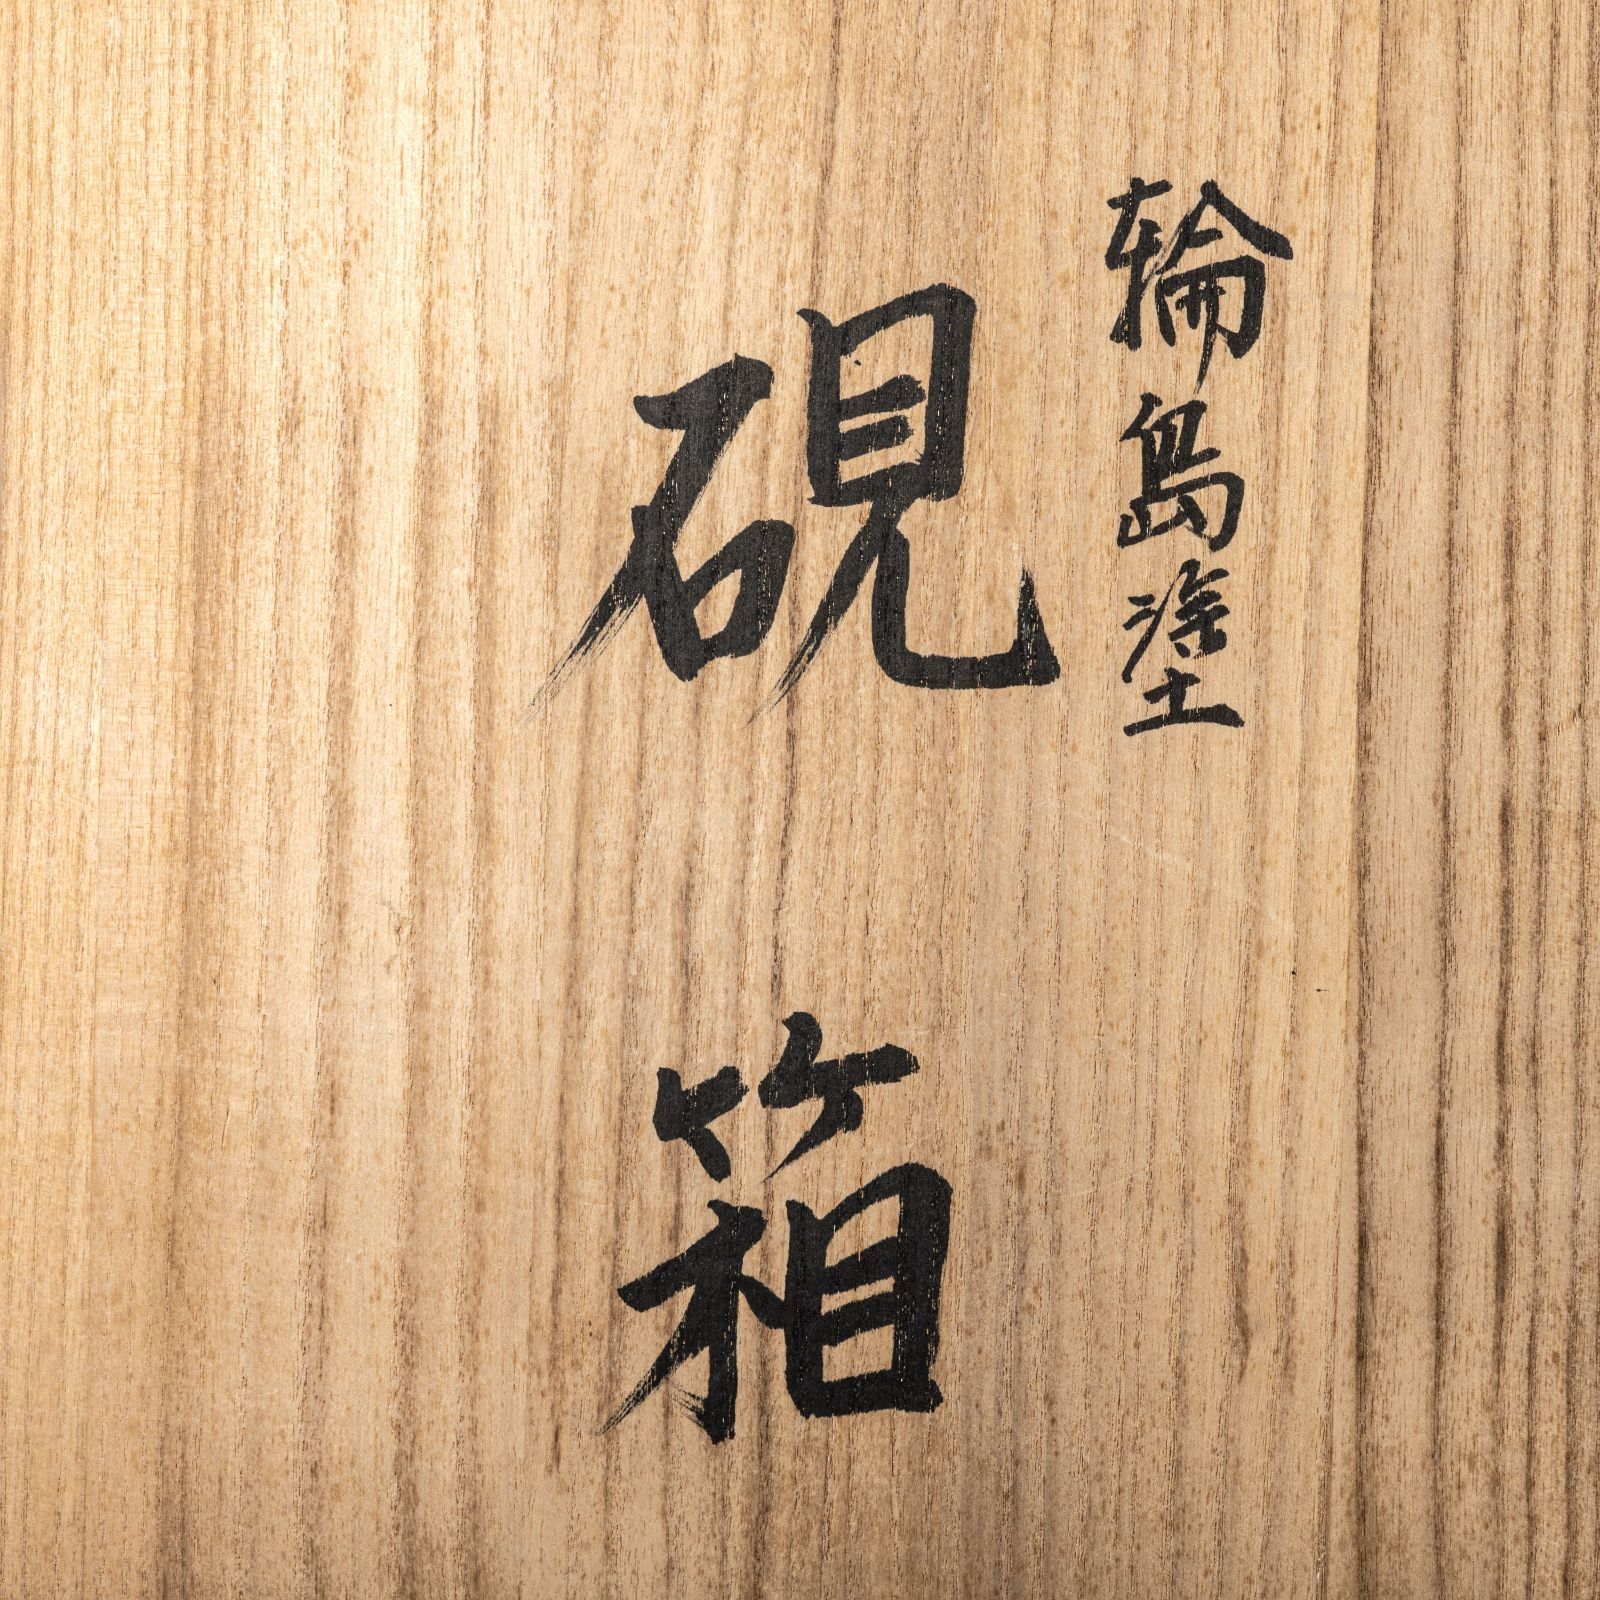 輪島塗
硯箱